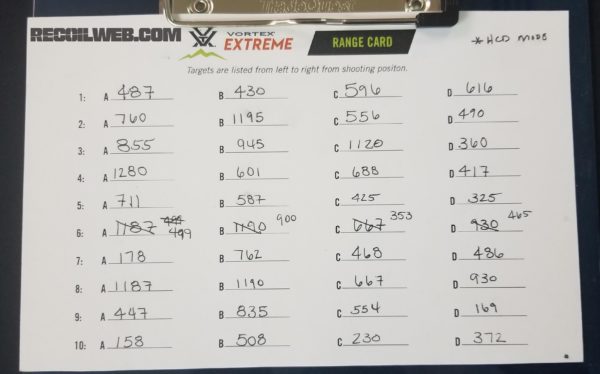 RECOILWEB.COM
VORTEX
EXTREME
RANGE CARD
*HCD MODE
Targets are listed from left to right from shooting positon.
1: A 487 B 430 C 596 D 616
2: A 760 B 1195 C 556 D 490
3: A 855 B 945 C 1120 D 360
4: A 1280 B 601 C 688 D 417
5: A 711 B 587 C 425 D 325
6: A 1187 499 B 1190 900 C 667 353 D 930 465
7: A 178 B 762 C 468 D 486
8: A 1187 B 1190 C 667 D 930
9: A 447 B 835 C 554 D 169
10: A 158 B 508 C 230 D 372